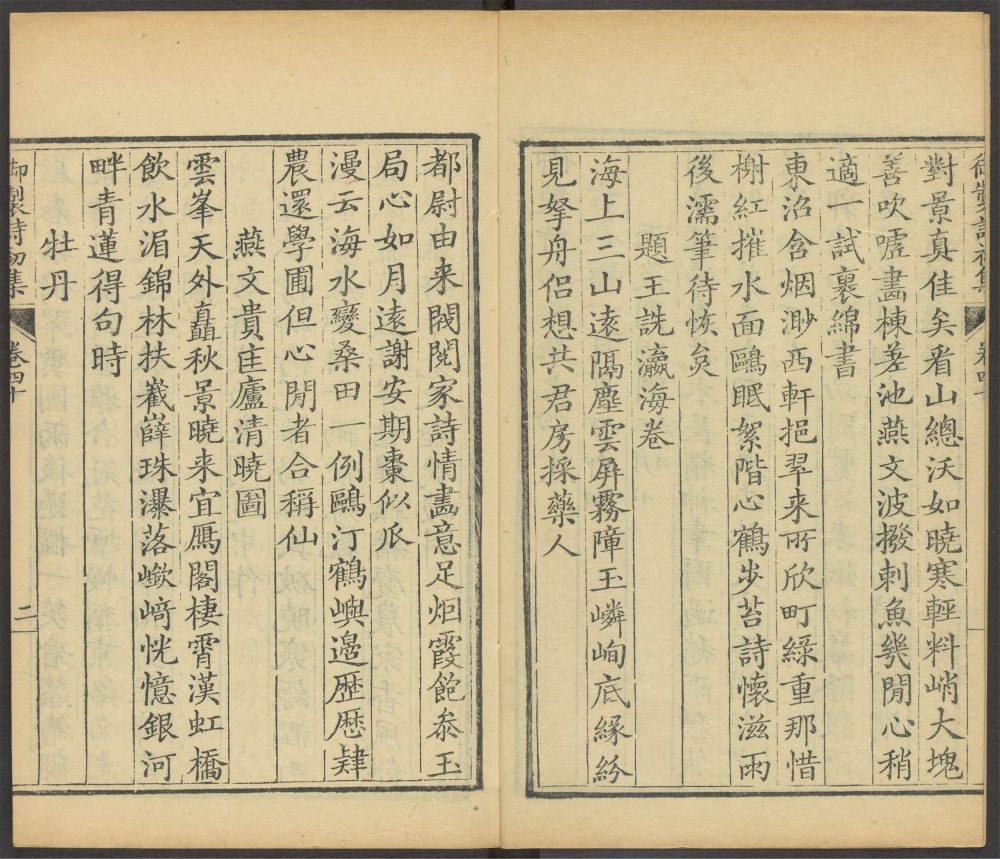 御製詩初集
卷四十
對景真佳矣看山總沃如曉寒輕料峭大塊
善吹噓畵棟差池燕文波撥剌魚㡬閒心稍
適一試裏綿書
東沼含烟渺西軒挹翠来所欣町綠重那惜
榭紅摧水面鷗眠絮階心鶴步苔詩懷滋雨
後濡筆待恢炱
題王詵瀛海卷
海上三山遠隔塵雲屏霧障玉嶙峋底緣紛
見拏舟侣想共君房採藥人
都尉由来閥閱家詩情畵意足烟霞飽叅玉
局心如月遠謝安期棗似瓜
漫云海水變桑田一例鷗汀鶴嶼邊歴歴肄
農還學圃但心閒者合稱仙
燕文貴匡廬清曉圖
雲峯天外矗秋景曉来宜鴈閣棲霄漢虹橋
飲水湄錦林扶嶻嶭珠瀑落嶔﨑恍憶銀河
畔青蓮得句時
牡丹
御製詩初集
卷四十
二